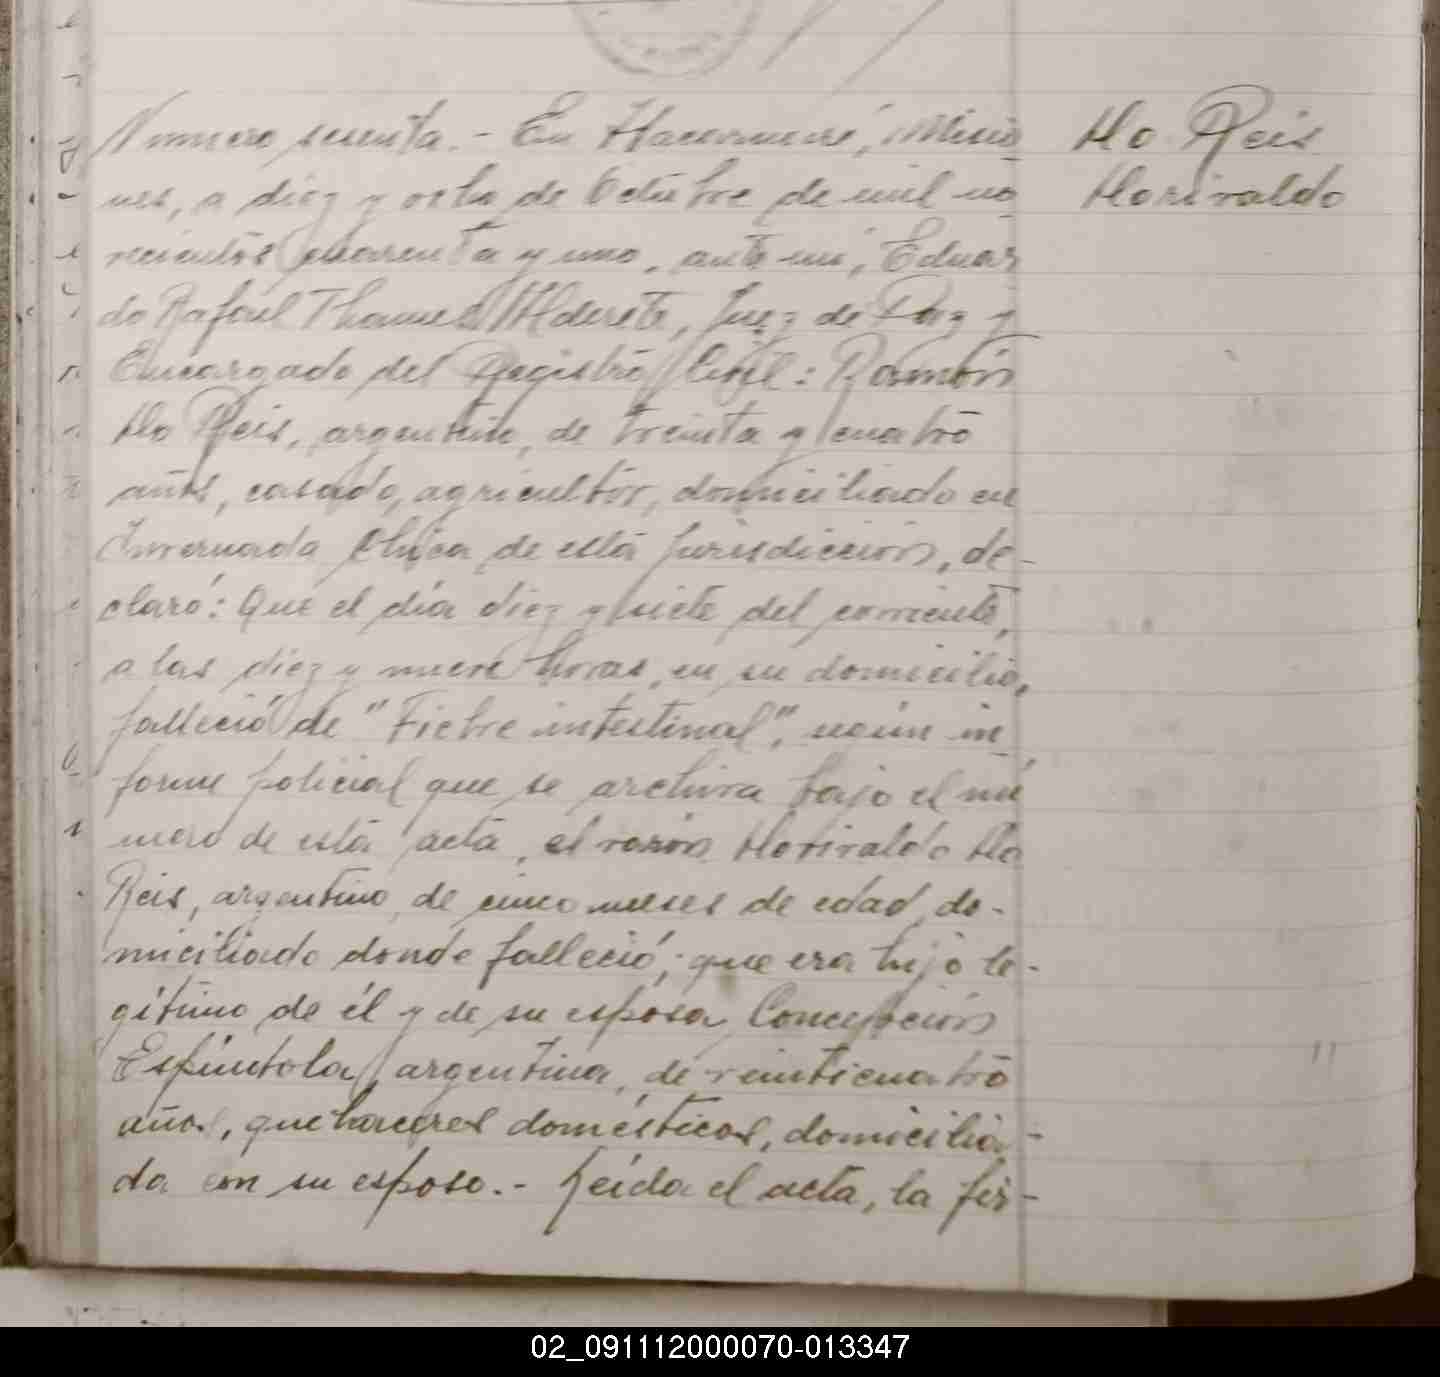 Número sesenta.- En Itacaruaré, Misio
nes, a diez y ocho de Octubre de mil no
vecientos cuarenta y uno, ante mí, Eduar
do Rafael Thames Alderete, Juez de Paz y
Encargado del Registro Civil: Ramón
Do Reis, argentino, de treinta y cuatro
años, casado, agricultor, domiciliado en
Invernada Chica, de esta jurisdicción, de-
claró: Que el día diez y siete del corriente,
a las diez y nueve horas, en su domicilio,
falleció de "Fiebre intestinal", según in
forme policial que se archiva bajo el nú
mero de esta acta, el varón Doriraldo Do
Reis, argentino, de cinco meses de edad, do-
miciliado donde falleció; que era hijo le-
gítimo de él y de su esposa Concepción
Espíndola, argentina, de veinticuatro
años, quehaceres domésticos, domicilia-
da con su esposo.- Leída el acta, la fir-
Do Reis
Doriraldo
02_091112000070-013347